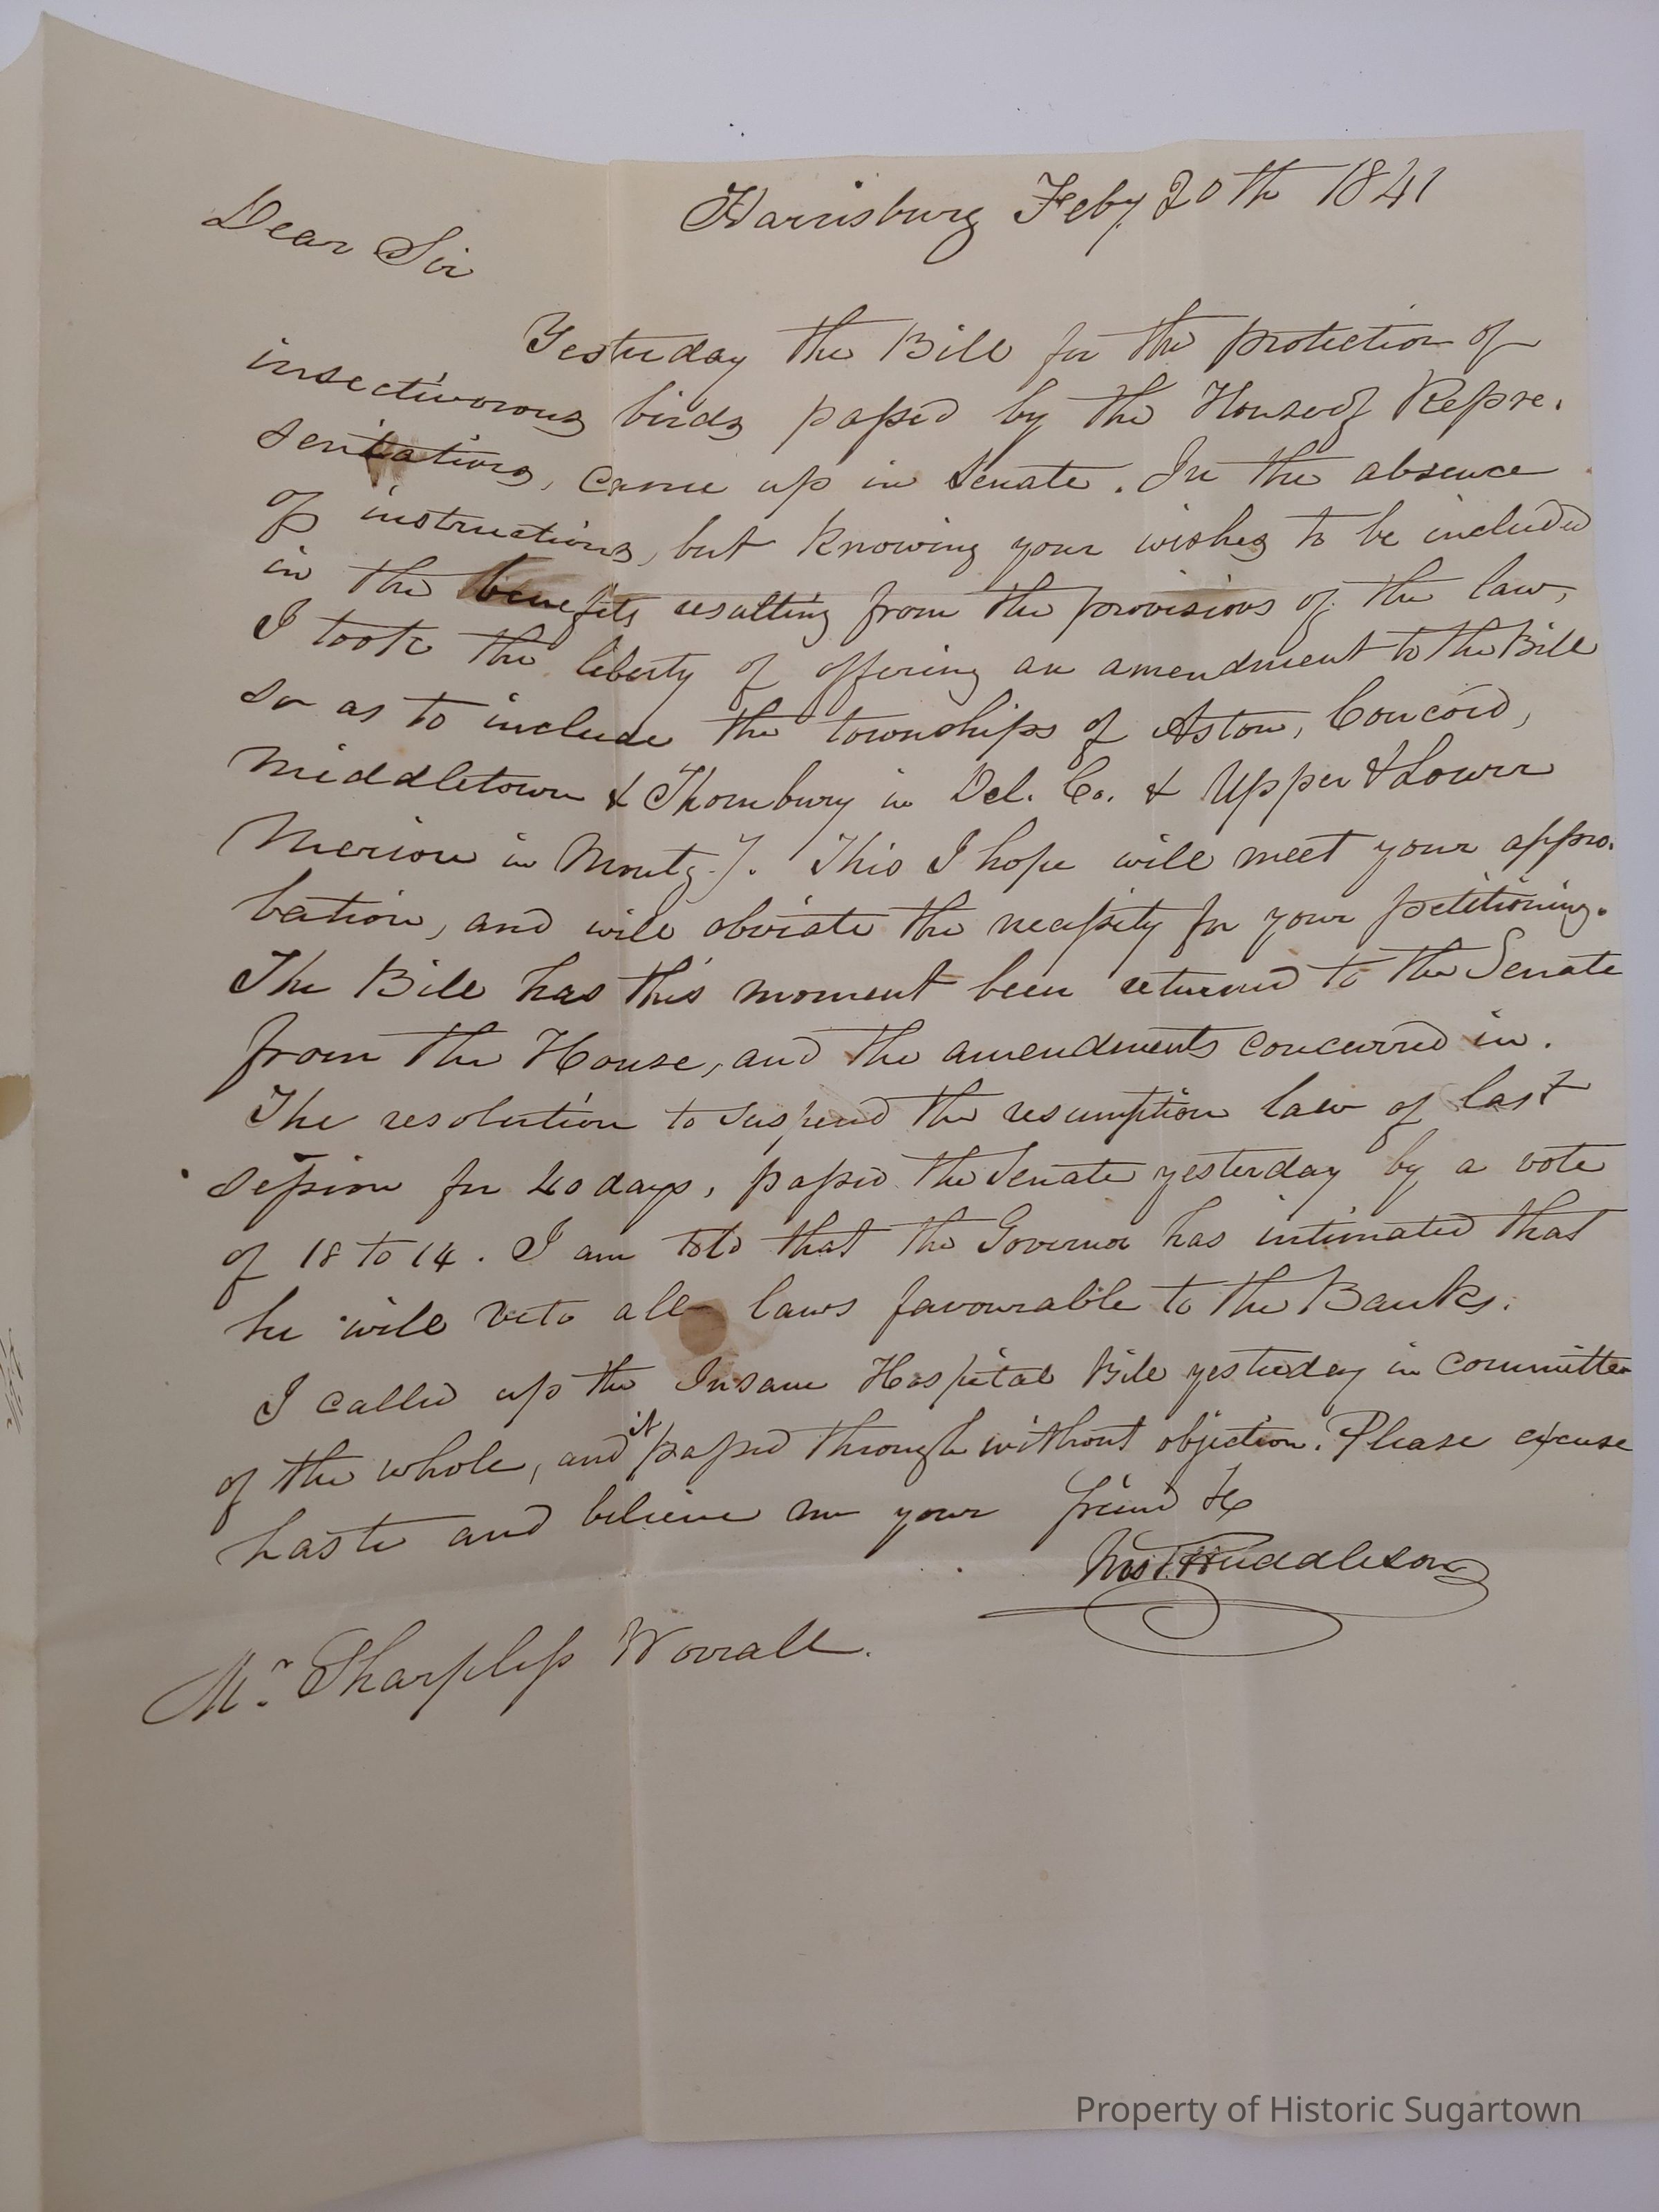 Harrisburg Feby 20th 1841
Dear Sir
Yesterday the Bill for the protection of
insectivorous birds passed by the House of Repre.
sentatives, came up in Senate. In the absence
of instructions, but knowing your wishes to be included
in the benefits resulting from the provisions of the law,
I took the liberty of offering an amendment to the Bill
so as to include the townships of Aston, Concord,
Middletown & Thornbury in Del. Co. & Upper & Lower
Merion in Montg.y. This I hope will meet your appro.
bation, and will obviate the necessity for your petitioning.
The Bill has this moment been returned to the Senate
from the House, and the amendments concurred in.
The resolution to suspend the resumption law of last
session for 40 days, passed the Senate yesterday by a vote
of 18 to 14. I am told that the Governor has intimated that
he will veto all laws favourable to the Banks.
I called up the Insane Hospital Bill yesterday in committee
of the whole, and it passed through without objection. Please excuse
haste and believe me your friend &c
Huddleson
Mr. Sharpless Worrall.
Property of Historic Sugartown